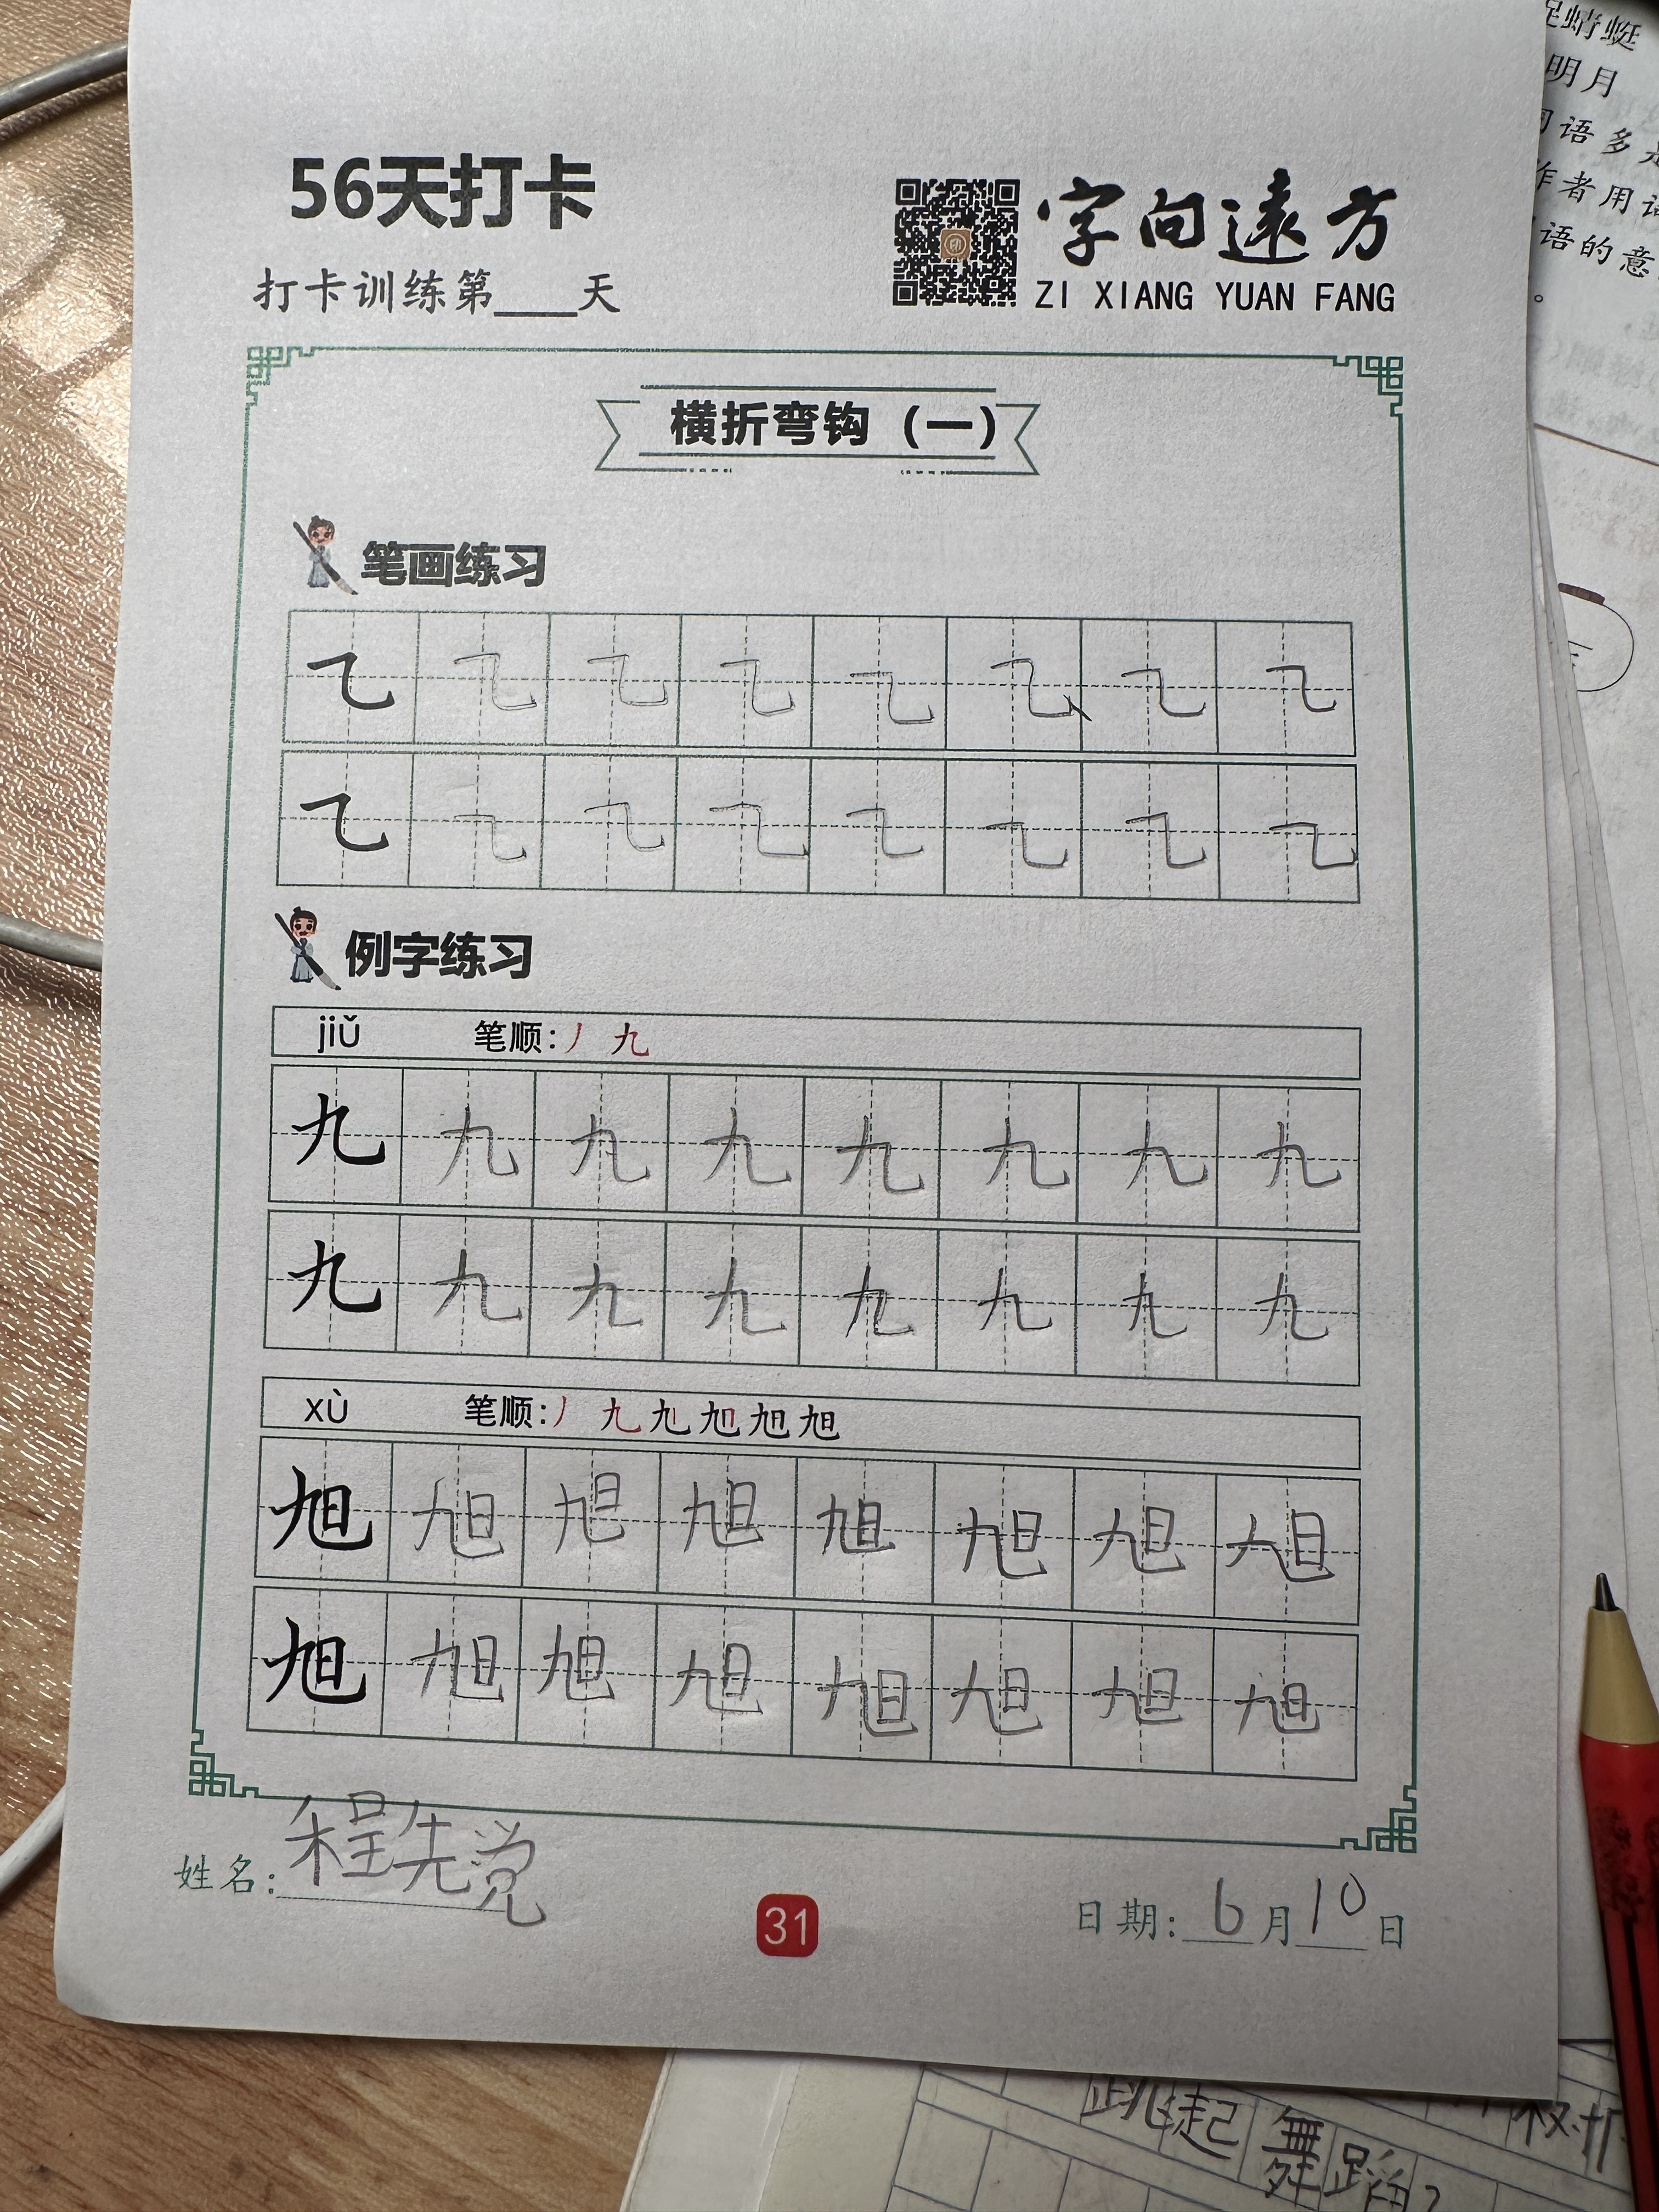 56天打卡
打卡训练第____天
字向遠方
ZI XIANG YUAN FANG
横折弯钩（一）
笔画练习
㇈ ㇈ ㇈ ㇈ ㇈ ㇈ ㇈ ㇈
㇈ ㇈ ㇈ ㇈ ㇈ ㇈ ㇈ ㇈
例字练习
jiǔ 笔顺：丿 九
九 九 九 九 九 九 九 九
九 九 九 九 九 九 九 九
xù 笔顺：丿 九 旭 旭 旭 旭
旭 旭 旭 旭 旭 旭 旭 旭
旭 旭 旭 旭 旭 旭 旭 旭
姓名：程先觉
31
日期：6月10日
蜻蜓
明月
语多
作者用
语的意
。
跳起舞蹈